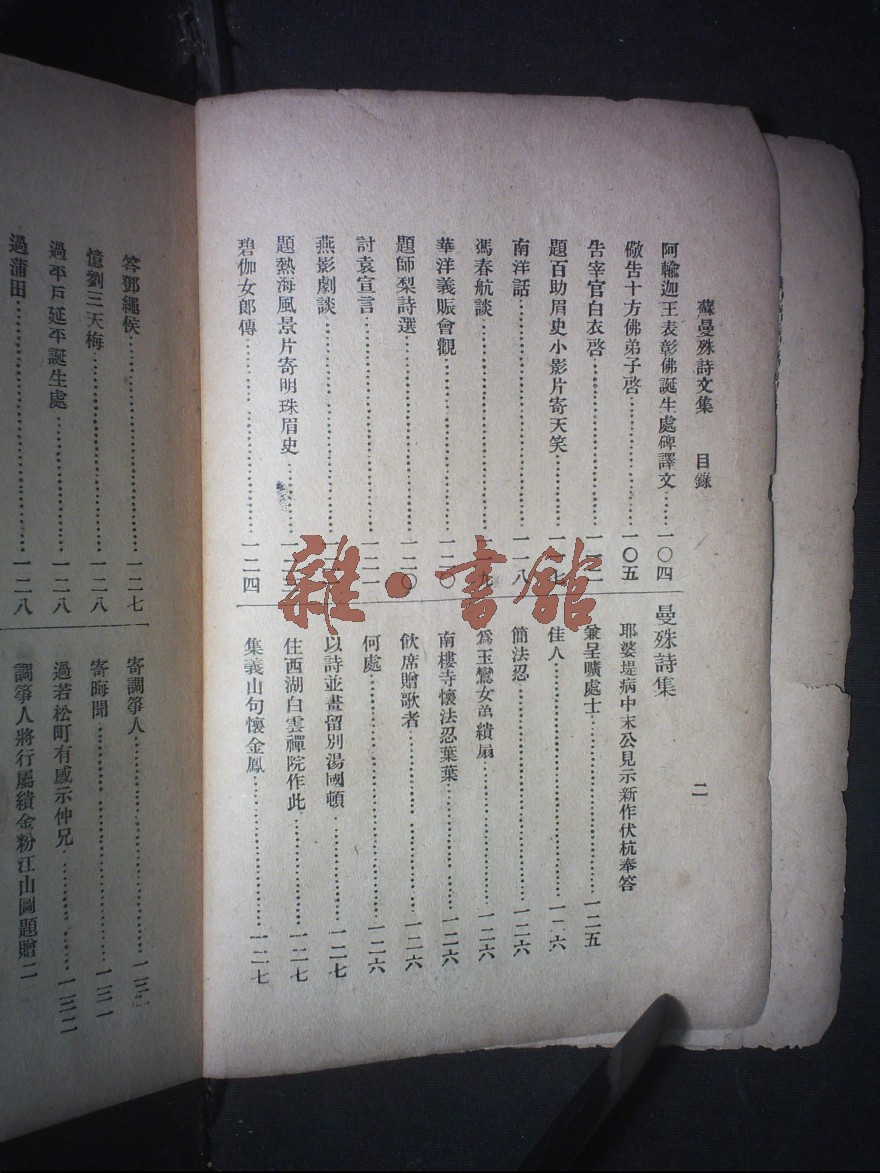 蘇曼殊詩文集 目錄
二
阿輸迦王表彰佛誕生處碑譯文……一〇四
敬告十方佛弟子啓……一〇五
告宰官白衣啓……
題百助眉史小影片寄天笑……
南洋話……一一八
馮春航談……
華洋義賑會觀……
題師梨詩選……一二〇
討袁宣言……
燕影劇談……
題熱海風景片寄明珠眉史……
碧伽女郎傳……一二四
曼殊詩集
耶婆堤病中末公見示新作伏枕奉答
兼呈曠處士……一二五
佳人……一二六
簡法忍……一二六
爲玉鸞女弟繢扇……一二六
南樓寺懷法忍葉葉……一二六
飲席贈歌者……一二六
何處……一二六
以詩並畫留別湯國頓……一二七
住西湖白雲禪院作此……一二七
集義山句懷金鳳……一二七
答鄧繩侯……一二七
憶劉三天梅……一二八
過平戶延平誕生處……一二八
過蒲田……一二八
寄調箏人……
寄晦聞……一三一
過若松町有感示仲兄……一三二
調箏人將行屬繢金粉江山圖題贈二
雜·書館